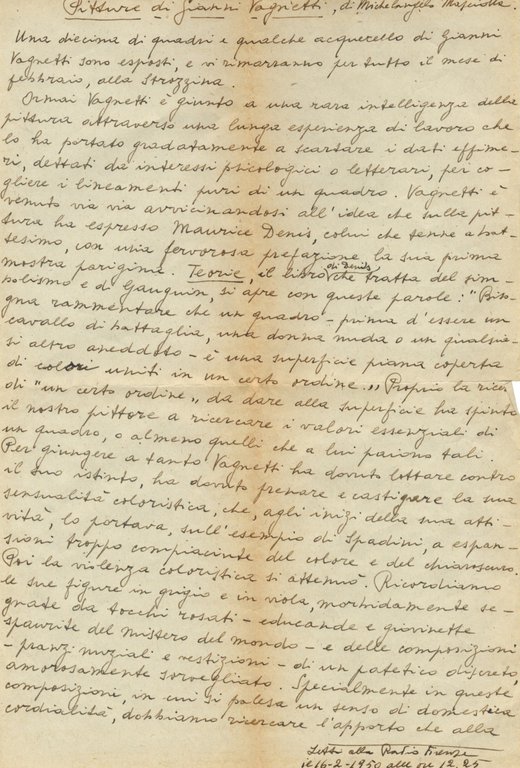 Pitture di Gianni Vagnetti, di Michelangelo Masciotta.
Una diecina di quadri e qualche acquerello di Gianni
Vagnetti sono esposti, e vi rimarranno per tutto il mese di
febbraio, alla Strozzina.
Ormai Vagnetti è giunto a una rara intelligenza della
pittura attraverso una lunga esperienza di lavoro che
lo ha portato gradatamente a scartare i dati effime-
ri, dettati da interessi psicologici o letterari, per co-
gliere i lineamenti puri di un quadro. Vagnetti è
venuto via via avvicinandosi all'idea che sulla pit-
tura ha espresso Maurice Denis, colui che tenne a bat-
tesimo, con una fervorosa prefazione, la sua prima
mostra parigina. Teorie, il libro di Denis che tratta del sim-
bolismo e di Gauguin, si apre con queste parole: "Biso-
gna rammentare che un quadro - prima d'essere un
cavallo di battaglia, una donna nuda o un qualsia-
si altro aneddoto - è una superficie piana coperta
di colori uniti in un certo ordine". Proprio la ricer
di "un certo ordine" da dare alla superficie ha spinto
il nostro pittore a ricercare i valori essenziali di
un quadro, o almeno quelli che a lui paiono tali.
Per giungere a tanto Vagnetti ha dovuto lottare contro
il suo istinto, ha dovuto frenare e castigare la sua
sensualità coloristica, che, agli inizi della sua atti-
vità, lo portava, sull'esempio di Spadini, a espan-
sioni troppo compiacinte del colore e del chiaroscuro.
Poi la violenza coloristica si attenuò. Ricordiamo
le sue figure in grigio e in viola, morbidamente se-
gnate da tocchi rosati - educande e giovinette
spaurite del mistero del mondo - e delle composizioni
- pranzi nuziali e vestizioni - di un patetico discreto,
amorosamente sorvegliato. Specialmente in queste
composizioni, in cui si palesa un senso di domestica
cordialità, dobbiamo ricercare l'apporto che alla
Letto alla Radio Firenze
il 16-2-1950 alle ore 12.25